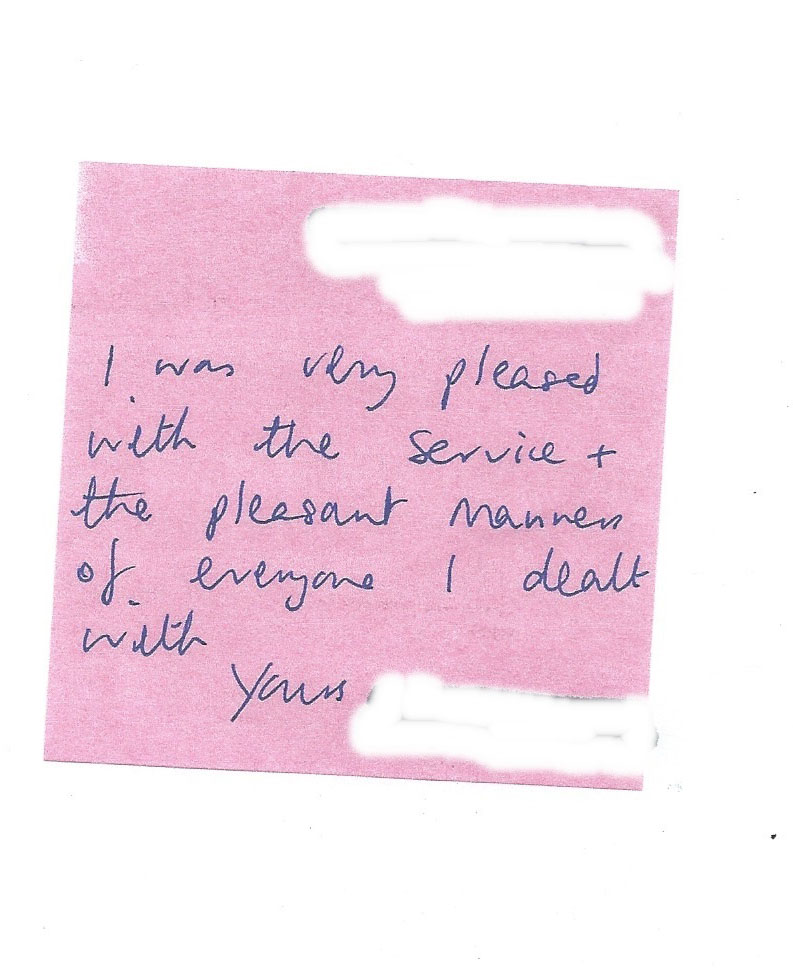 I was very pleased
with the service +
the pleasant manners
of everyone I dealt
with
Yours